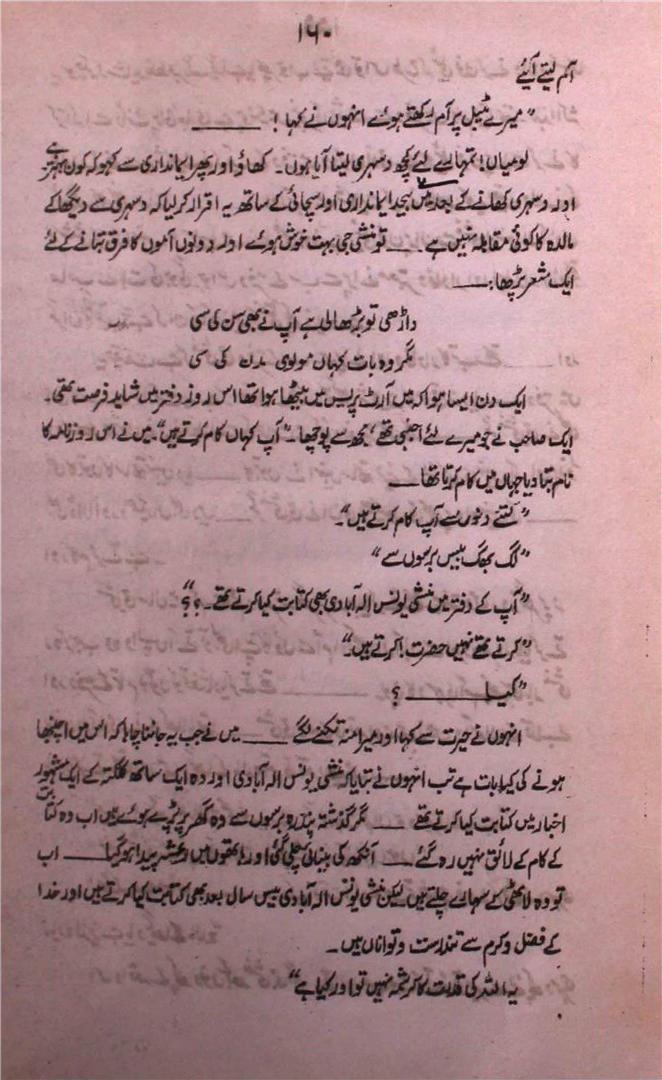 ۱۶۰
آم لیتے آیئے
"میرے ٹیبل پر آم رکھتے ہوئے انہوں نے کہا! ـــــــ
لو میاں! تمہارے لئے کچھ دسہری لیتا آیا ہوں۔ کھاؤ اور پھر ایمانداری سے کہو کہ کون بہتر ہے
اور دسہری کھانے کے بعد میں بیحد ایمانداری اور سچائی کے ساتھ یہ اقرار کر لیا کہ دسہری سے دیگھا کے
مالدہ کا کوئی مقابلہ نہیں ہے۔ ــــ تو منشی جی بہت خوش ہوئے اور دونوں آموں کا فرق بتانے کے لئے
ایک شعر پڑھا:ــــ
داڑھی تو بڑھالی ہے آپ نے بھی سن کی سی
مگر وہ بات کہاں مولوی مدن کی سی
ایک دن ایسا ہوا کہ میں آرٹ پریس میں بیٹھا ہوا تھا اس روز دفتر میں شاید فرصت تھی۔
ایک صاحب نے جو میرے لئے اجنبی تھے، مجھ سے پوچھا۔ "آپ کہاں کام کرتے ہیں"۔ میں نے اس روزنامہ کا
نام بتا دیا جہاں میں کام کرتا تھا ــــ
"کتنے دنوں سے آپ کام کرتے ہیں"۔
"لگ بھگ بیس برسوں سے"
"آپ کے دفتر میں منشی یونس الہ آبادی بھی کتابت کیا کرتے تھے۔؟؟"
"کرتے تھے نہیں حضرت! کرتے ہیں۔"
"کیا ـــــــــ؟
انہوں نے حیرت سے کہا اور میرا منہ تکنے لگے ــــــ میں نے جب یہ جاننا چاہا کہ اس میں اچنبھا
ہونے کی کیا بات ہے تب انہوں نے بتایا کہ منشی یونس الہ آبادی اور وہ ایک ساتھ کلکتہ کے ایک مشہور
اخبار میں کتابت کیا کرتے تھے ــــ مگر گذشتہ پندرہ برسوں سے وہ گھر پر پڑے ہوئے ہیں اب وہ کتابت
کے کام کے لائق نہیں رہ گئے ــــ آنکھ کی بینائی چلی گئی اور ہاتھوں میں رعشہ پیدا ہو گیا ــــ اب
تو وہ لاٹھی کے سہارے چلتے ہیں لیکن منشی یونس الہ آبادی بیس سال بعد بھی کتابت کیا کرتے ہیں اور خدا
کے فضل و کرم سے تندرست و توانا ہیں۔
یہ اللہ کی قدرت کا کرشمہ نہیں تو اور کیا ہے"